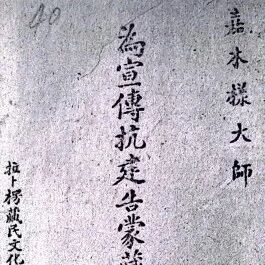 嘉木樣大師
為宣傳抗建告蒙藏
拉卜楞藏民文化
40